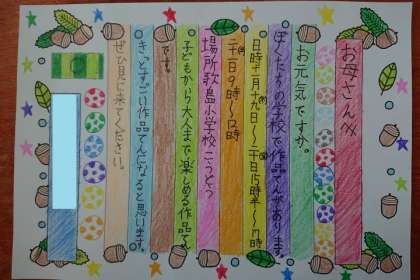 お母さんへ
お元気ですか。
ぼくたちの学校で作品てんがあります。
日時十一月十九日〜二十日15時半〜17時
二十一日9時〜12時
場所歌島小学校こうどう
子どもから大人まで楽しめる作品てん
です。
きっとすごい作品てんになると思います。
ぜひ見に来てください。